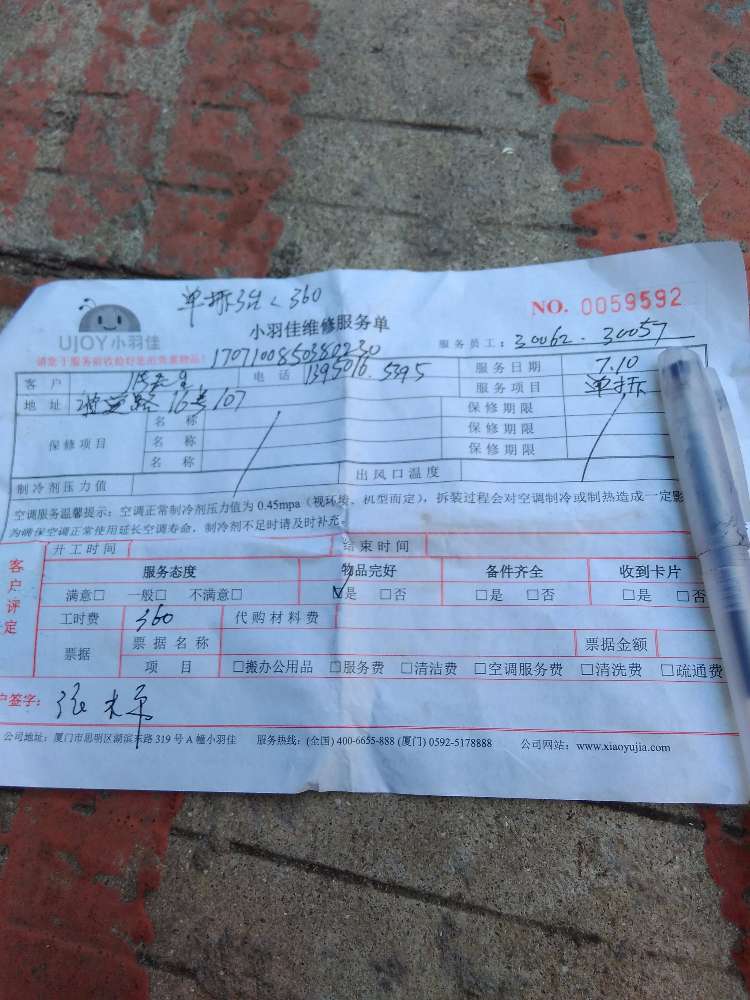 单拆3台<360
NO. 0059592
UJOY小羽佳
小羽佳维修服务单
服务员工: 30062. 30057
请您于服务前收检好您的贵重物品!
1707100850380230
客 户 电 话 1395016.5395 服务日期 7.10
服务项目 单拆
地 址 16号107 保修期限
保修项目 名 称
名 称 保修期限
名 称 保修期限
制冷剂压力值 出风口温度
空调服务温馨提示:空调正常制冷剂压力值为 0.45mpa(视环境、机型而定),拆装过程会对空调制冷或制热造成一定影
为确保空调正常使用延长空调寿命,制冷剂不足时请及时补充。
客户评定
开工时间 结束时间
服务态度 物品完好 备件齐全 收到卡片
满意□ 一般□ 不满意□ ☑是 □否 □是 □否 □是 □否
工时费 360 代购材料费
票据 票据名称 票据金额
项 目 □搬办公用品 □服务费 □清洁费 □空调服务费 □清洗费 □疏通费
户签字:
公司地址:厦门市思明区湖滨东路 319 号 A 幢小羽佳 服务热线:(全国) 400-6655-888 (厦门) 0592-5178888 公司网站:www.xiaoyujia.com